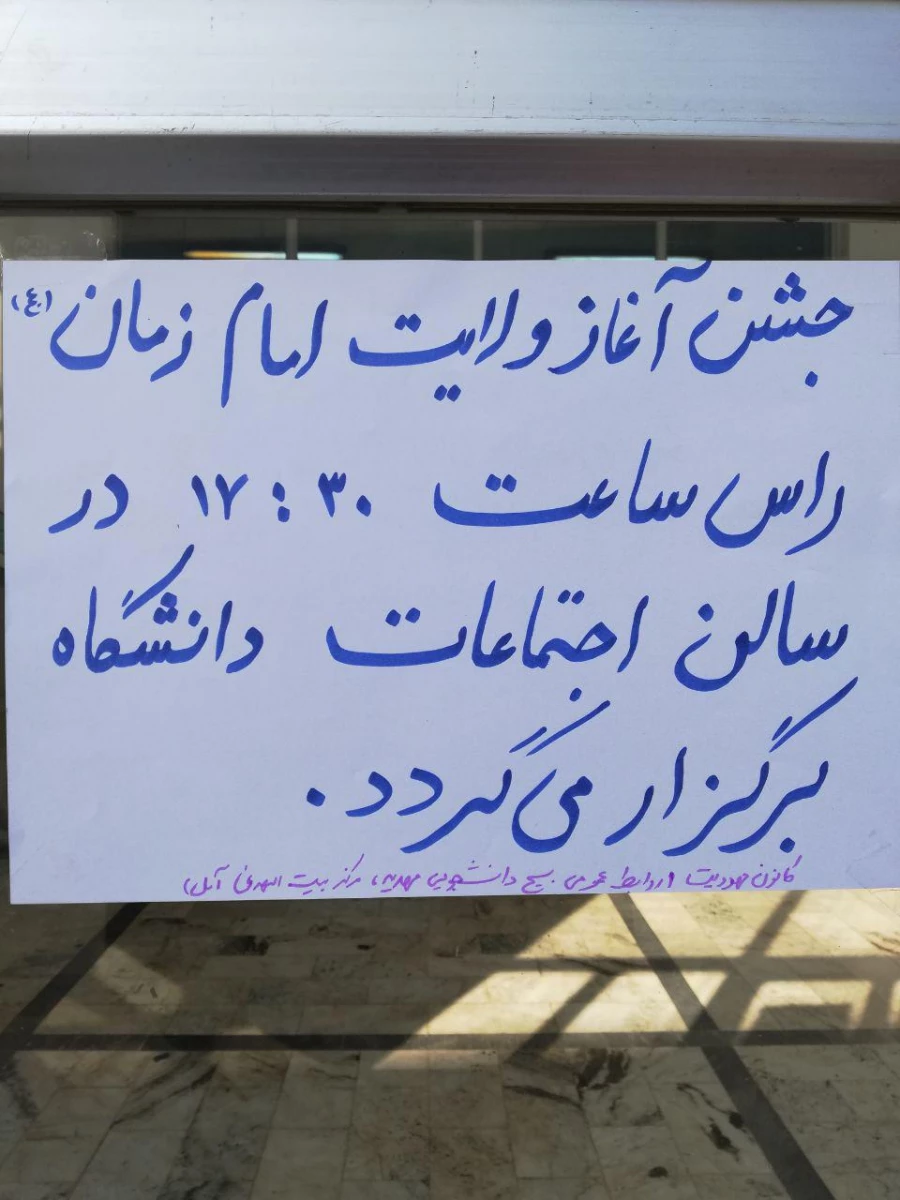 جشن آغاز ولایت امام زمان (ع)
راس ساعت ۱۷:۳۰ در
سالن اجتماعات دانشگاه
برگزار می گردد.
کانون مهدویت (روابط عمومی بسیج دانشجویی مهدیه، مرکز بیت المهدی آمل)